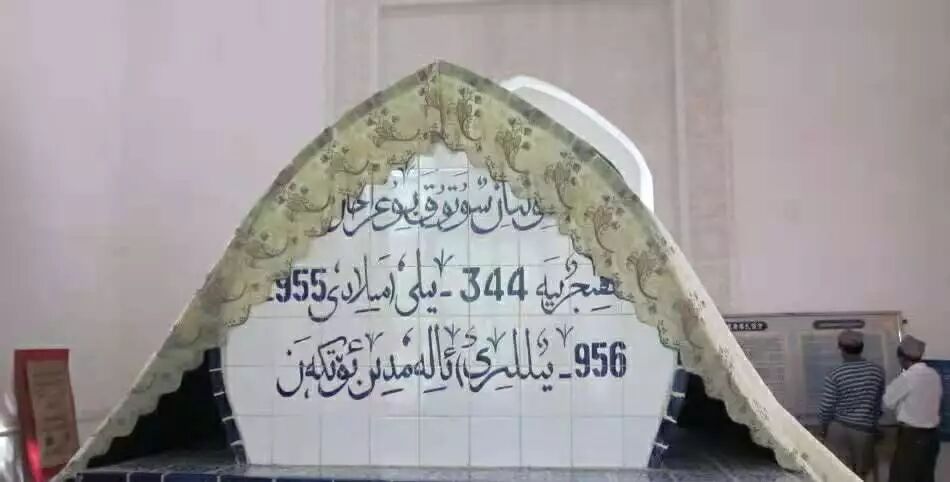 سۇتۇق بۇغراخان
ھىجرىيە 344 - يىلى (مىلادى 955 -
956 - يىللىرى) ئالەمدىن ئۆتكەن